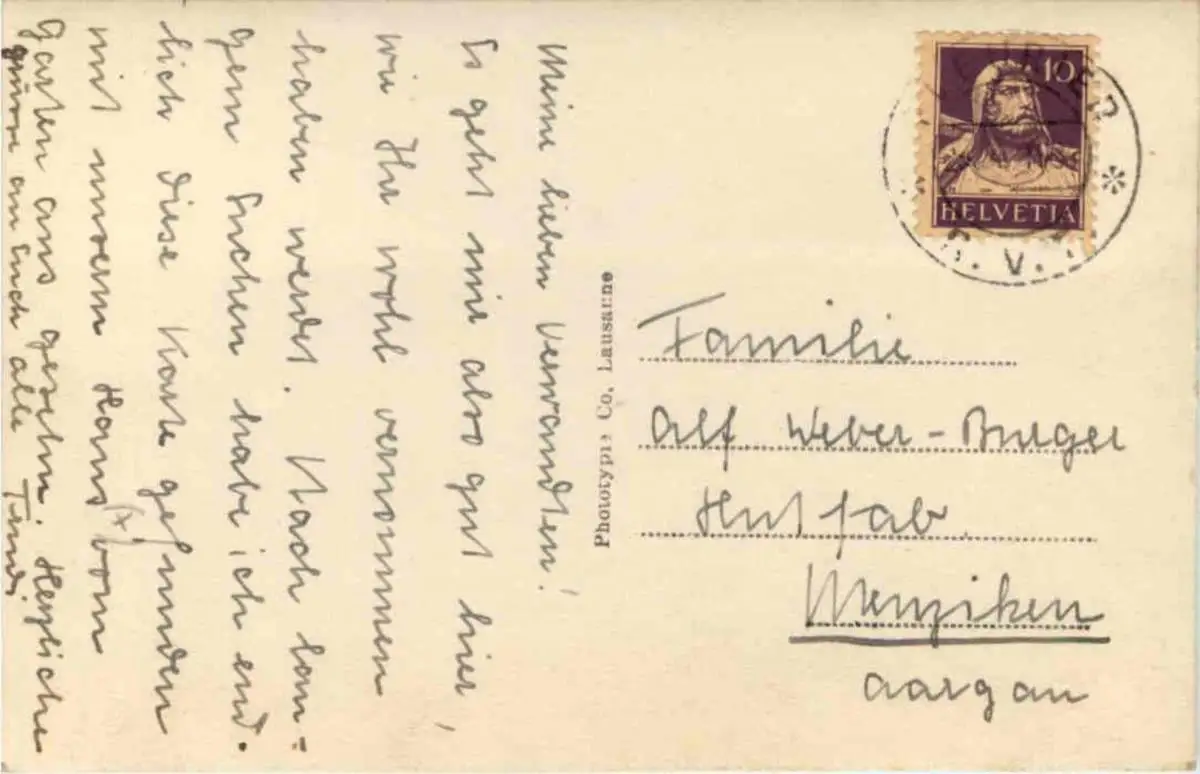 Meine lieben Verwandten!
Es geht mir also gut hier,
wie Ihr wohl vernommen
haben werdet. Nach lan-
gem Suchen habe ich end-
lich diese Karte gefunden
mit unserm Haus (x) vom
Garten aus gesehn. Herzliche
Grüsse an Euch alle Trudi
Phototypie Co. Lausanne
10
HELVETIA
Familie
Alf Weber-Burger
Hutfab.
Menziken
Aargau